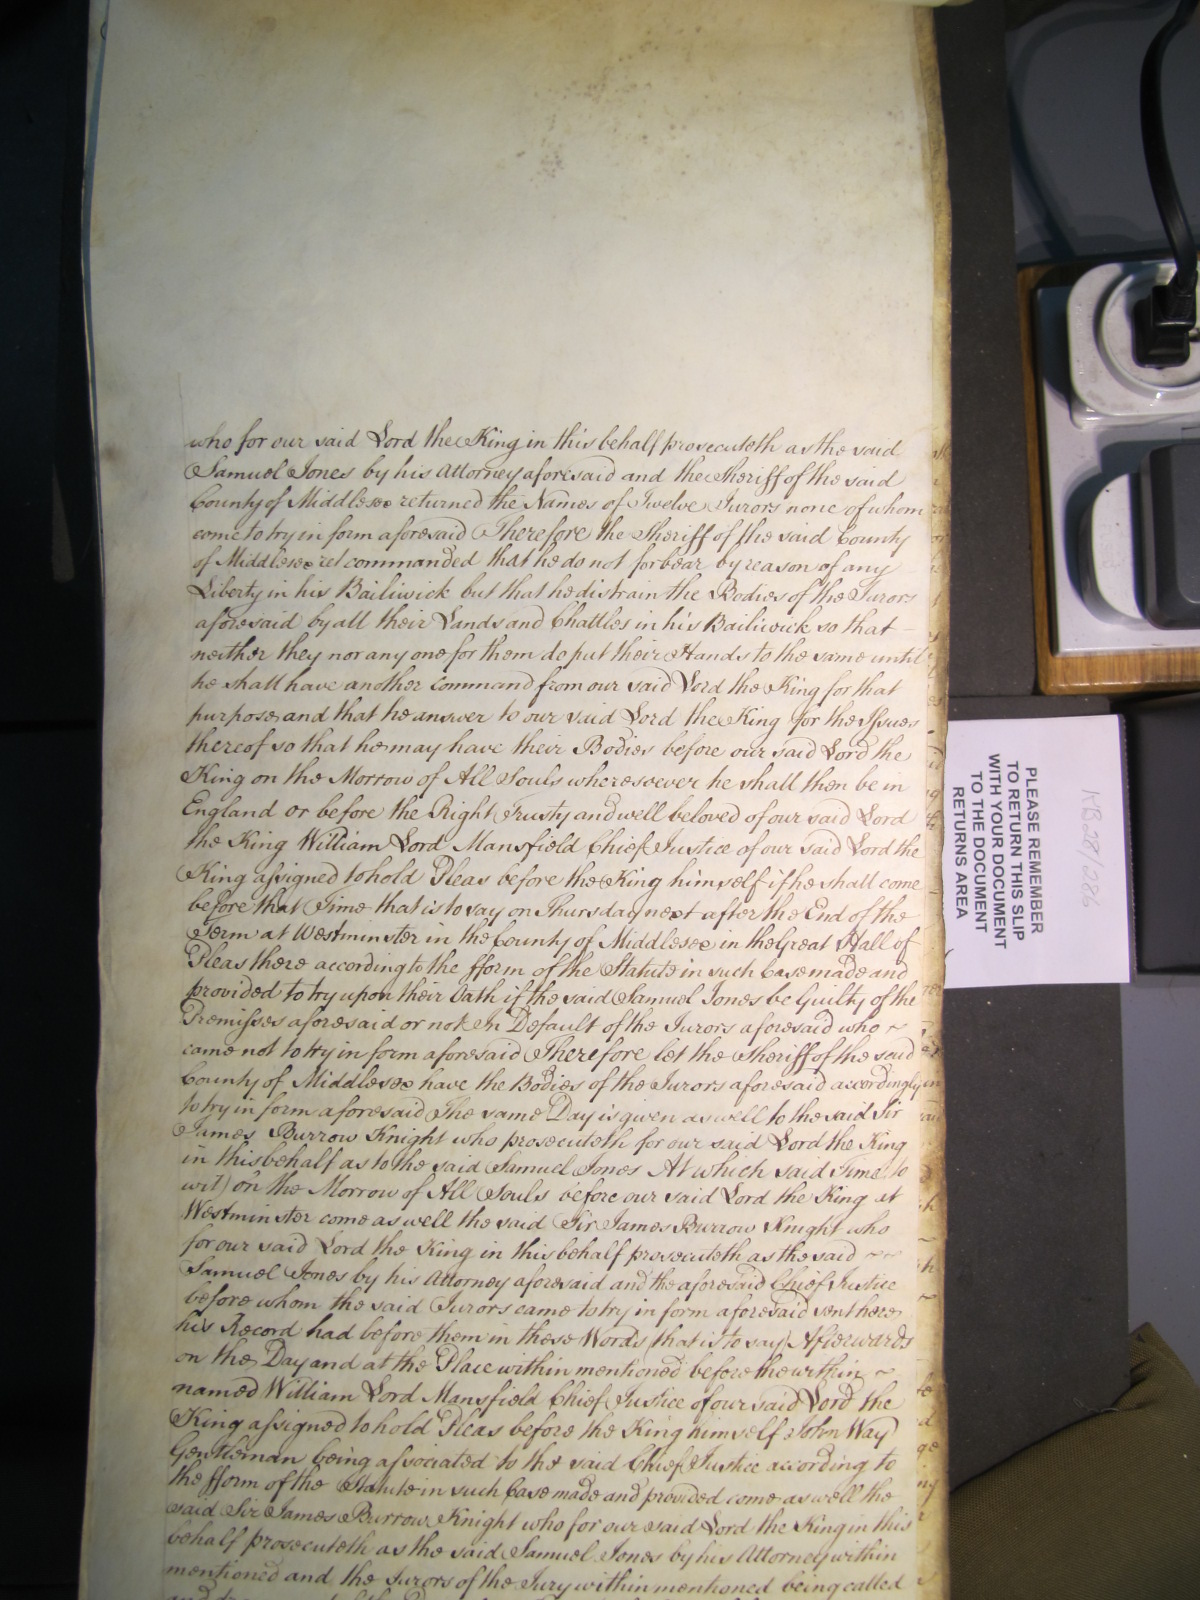 who for our said Lord the King in this behalf prosecuteth as the said
Samuel Jones by his Attorney aforesaid and the Sheriff of the said
County of Middlesex returned the Names of Twelve Jurors none of whom
come to try in form aforesaid Therefore the Sheriff of the said County
of Middlesex is commanded that he do not forbear by reason of any
Liberty in his Bailiwick but that he distrain the Bodies of the Jurors
aforesaid by all their Lands and Chattles in his Bailiwick so that
neither they nor any one for them do put their Hands to the same until
he shall have another Command from our said Lord the King for that
purpose and that he answer to our said Lord the King for the Issues
thereof so that he may have their Bodies before our said Lord the
King on the Morrow of All Souls wheresoever he shall then be in
England or before the Right Trusty and well beloved of our said Lord
the King William Lord Mansfield Chief Justice of our said Lord the
King assigned to hold Pleas before the King himself if he shall come
before that Time that is to say on Thursday next after the End of the
Term at Westminster in the County of Middlesex in the Great Hall of
Pleas there according to the fform of the Statute in such Case made and
provided to try upon their Oath if the said Samuel Jones be Guilty of the
Premisses aforesaid or not In Default of the Jurors aforesaid who ~
came not to try in form aforesaid Therefore let the Sheriff of the said
County of Middlesex have the Bodies of the Jurors aforesaid accordingly
to try in form aforesaid The same Day is given as well to the said Sir
James Burrow Knight who prosecuteth for our said Lord the King
in this behalf as to the said Samuel Jones At which said Time (to
wit) on the Morrow of All Souls before our said Lord the King at
Westminster come as well the said Sir James Burrow Knight who
for our said Lord the King in this behalf prosecuteth as the said ~ ~
Samuel Jones by his Attorney aforesaid and the aforesaid Chief Justice
before whom the said Jurors came to try in form aforesaid sent here
his Record had before them in these Words (that is to say) Afterwards
on the Day and at the Place within mentioned before the within ~
named William Lord Mansfield Chief Justice of our said Lord the
King assigned to hold Pleas before the King himself John Way
Gentleman being associated to the said Chief Justice according to
the fform of the Statute in such Case made and provided come as well the
said Sir James Burrow Knight who for our said Lord the King in this
behalf prosecuteth as the said Samuel Jones by his Attorney within
mentioned and the Jurors of the Jury within mentioned being called
PLEASE REMEMBER
TO RETURN THIS SLIP
WITH YOUR DOCUMENT
TO THE DOCUMENT
RETURNS AREA
KB28/286